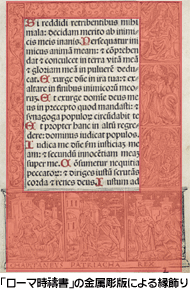 Si reddidi retribentibus mihi
mala: decidam merito ab inimi
cis meis inanis. Persequatur ini
micus animā meam: & cōprehen
dat & conculcet in terra vitā meā
& gloriam meā in pulverē deducat.
Exurge dñe in ira tua: & ex
altare in finibus inimicorū meo
rū. Et exurge domine deus me
us in precepto quod mandasti: &
synagoga populorū circūdabit te
Et propter hanc in altū regre
dere: dominus iudicat populos.
Iudica me dñe scđm iusticiā me
am: & secundū innocētiam meā
super me. Cōsumetur nequitia
peccatorū: & diriges iustū scrutās
corda & renes deus. Iustum ad
「ローマ時祷書」の金属彫版による縁飾り